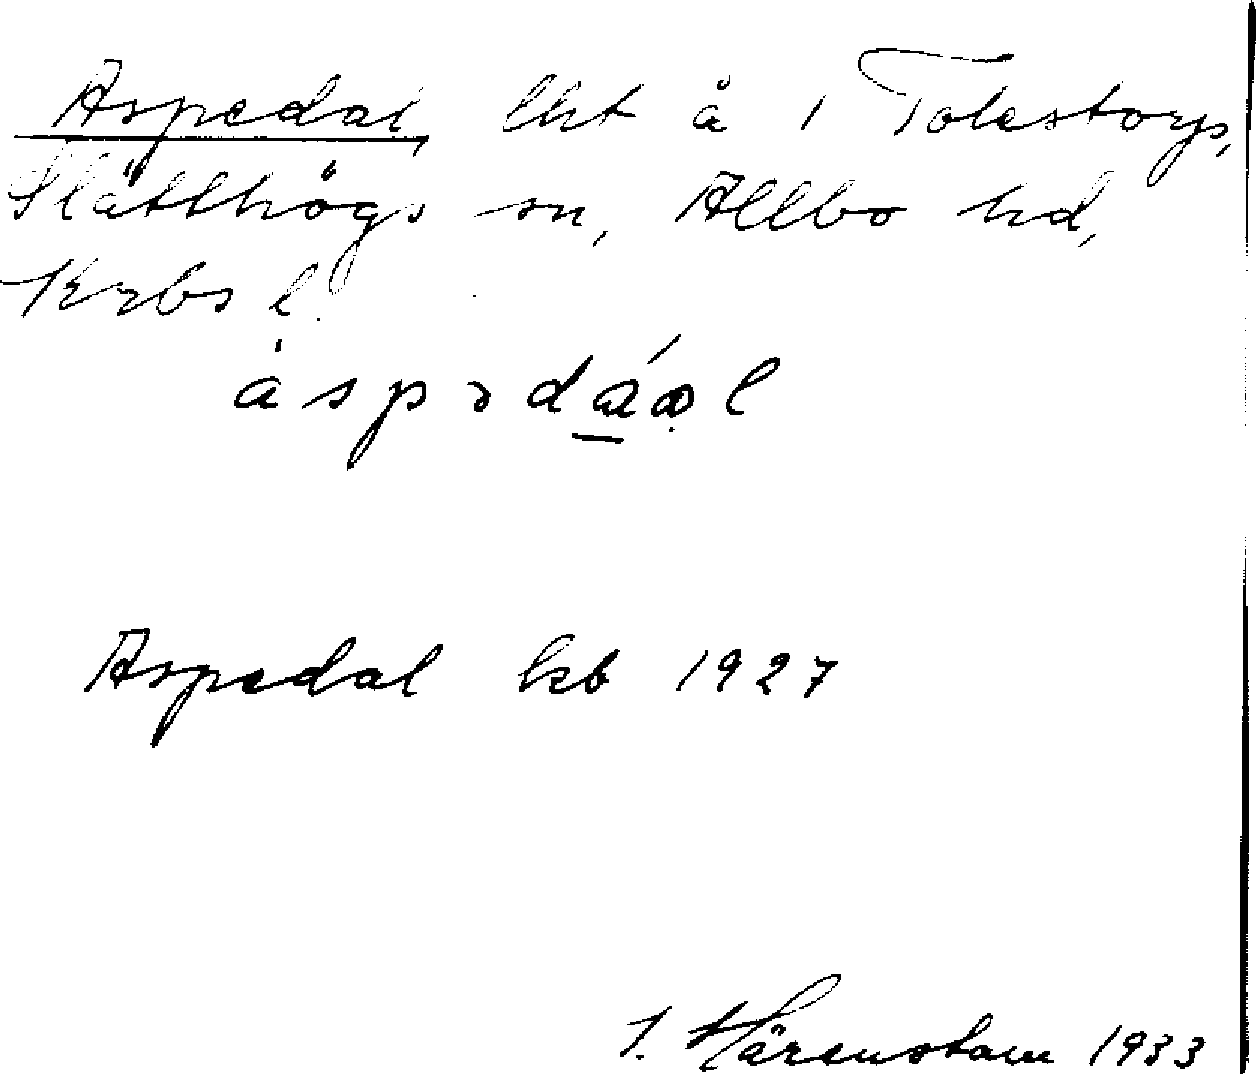 Aspedal, lht å 1 Tolestorp,
Slätthögs sn, Allbo hd,
Krbs l.
àspədáal
Aspedal kb 1927
I. Härenstam 1933